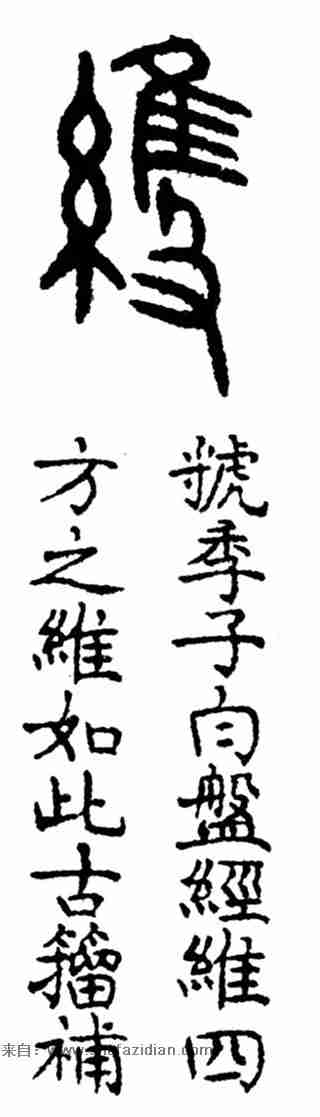 維
虢季子白盤經維四
方之維如此古籀補
来自：www.shufazidian.com